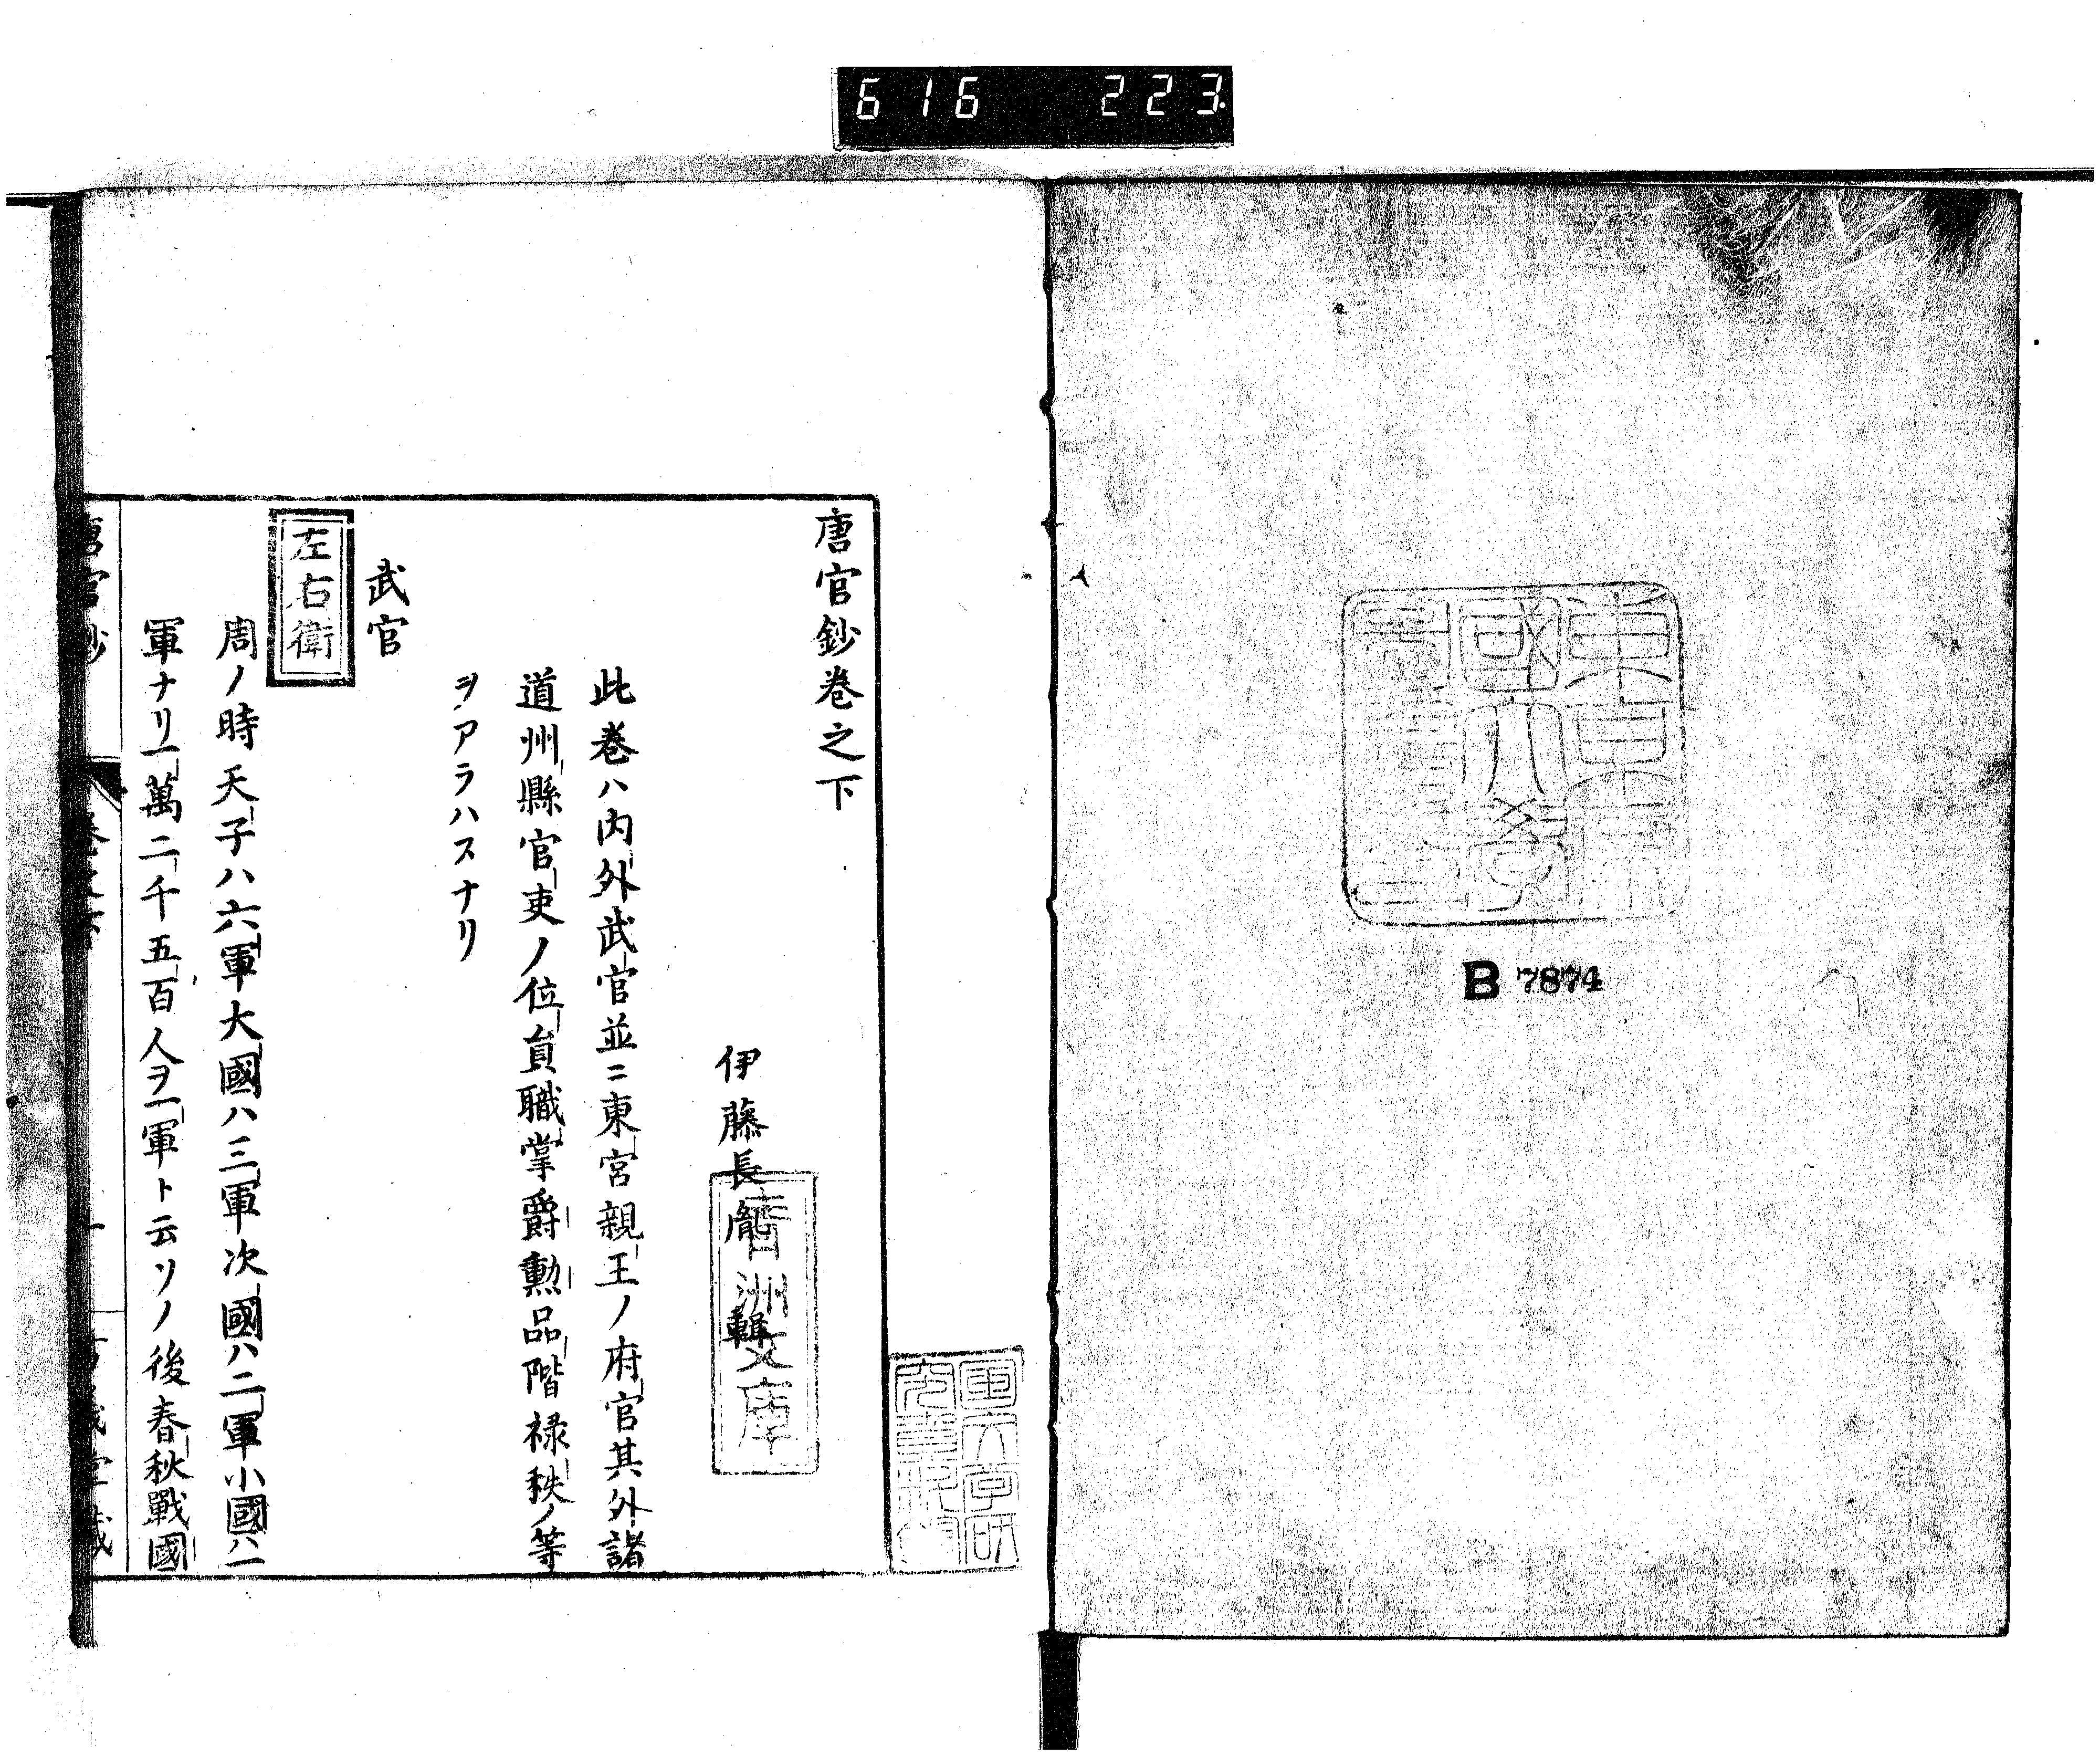 616 223.
B 7874
唐官鈔卷之下
伊藤長胤輯
此卷ハ内外武官並ニ東宮親王ノ府官其外諸
道州縣官吏ノ位員職掌爵勲品階禄秩ノ等
ヲアラハスナリ
武官
左右衛
周ノ時天子ハ六軍大國ハ三軍次國ハ二軍小國ハ一
軍ナリ一萬二千五百人ヲ一軍ト云ソノ後春秋戰國
唐官鈔
洲文庫